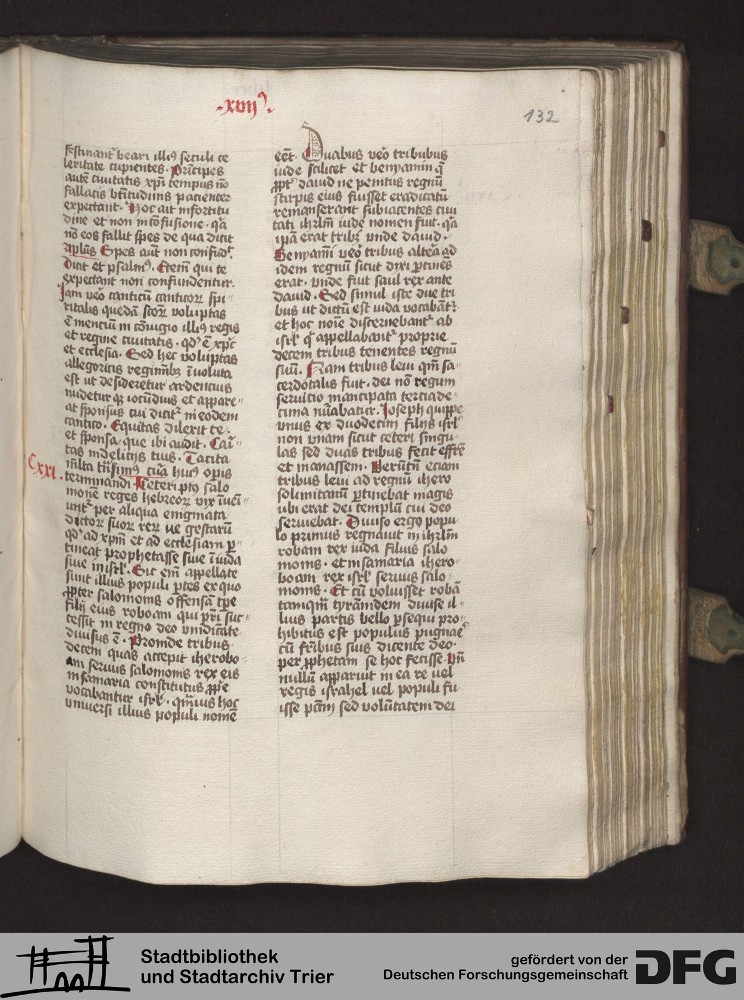 ·xvij·
132
festinant beari illi9 seculi ce
leritate cupientes. Principes
autē ciuitatis xpi tempus nō
fallacis btitudinis pacienter
expectant. Hoc ait infortitu
dine et non in cōfusione. q̄a
nō eos fallit spes de qua dicit
aplūs Spes aūt non confūd᷒.
Dicit et psalm9. Etem̄ qui te
expectant non confundentur.
Jam ūo canticū canticor̄ spi
ritalis quedā scōr̄ voluptas
ē mentiū in cōiugio illi9 regis
et regine ciuitatis. qd̄ ē xp̄c
et ecclesia. Sed hec voluptas
allegoricis tegminib9 īuoluta
est ut desideretur ardencius
nudetur qȝ iocūdius et appare
at sponsus cui dicit᷒ in eodem
cantico. Equitas dilexit te.
et sponsa que ibi audit. Cari
tas in delicijs tuis. Tacita
Cxxi.
terminandi. Ceteri pto salo
monē reges hebreor̄ vix īuēi
unt᷒ per aliqua enigmata
dictor̄ suor̄ rer̄ ue gestarū
qd̄ ad xpm̄ et ad ecclesiam ꝑ
tineat prophetasse siue ī iuda
siue in isrl̄. Sic em̄ appellate
sunt illius populi ꝑtes ex quo
ꝓpter salomonis offensā tꝑe
filij eius roboam qui pr̄i suc
cessit in regno deo vindicāte
diuisus ē. Proinde tribus
decem quas accepit iherobo
am seruus salomonis rex eis
in samaria constitutus ꝓpe
vocabantur isrl̄. quāuis hoc
vniuersi illius populi nomē
eēt. Duabus ūo tribubus
iude scilicet et benyamin q̄
ꝓpt᷒ dauid ne penitus regnū
stirpis eius fuisset eradicatū
remanserant subiacentes ciui
tati ihrlm̄ iude nomen fuit. q̄a
ipā erat tribȝ vnde dauid.
Benyamī ūo tribus altea ad
idem regnū sicut dixi ꝑtines
erat. vnde fuit saul rex ante
dauid. Sed simul iste due tri
bus ut dictū est iuda vocabāt᷒
et hoc noīe discernebant᷒ ab
isrl̄ q̄ appellabant᷒ proprie
decem tribus tenentes regnū
suū. Nam tribus leui qm̄ sa
cerdotalis fuit. dei nō regum
seruitio mancipata terciade
cima nūabatur. Joseph quippe
vnus ex duodecim filijs isrl̄
non vnam sicut ceteri singu
las sed duas tribus fecit effrē
et manassem. Verūtn̄ eciam
tribus leui ad regnū ihero
solimitanū ꝑtinebat magis
ubi erat dei templū cui deo
seruiebat. Diuiso ergo popu
lo primus regnauit in ihrlm̄
robam rex iuda filius salo
monis. et in samaria ihero
boam rex isrl̄ seruus salo
monis. Et cū voluisset robā
tamqm̄ tyrānidem diuise il
lius partis bello ꝑsequi pro
hibitus est populus pugnare
cū fr̄ibus suis dicente deo
per ꝓphetam se hoc fecisse. Vn̄
nullū apparuit in ea re vel
regis israhel uel populi fu
isse pctm̄ sed volūtatem dei
Stadtbibliothek
und Stadtarchiv Trier
gefördert von der
Deutschen Forschungsgemeinschaft
DFG